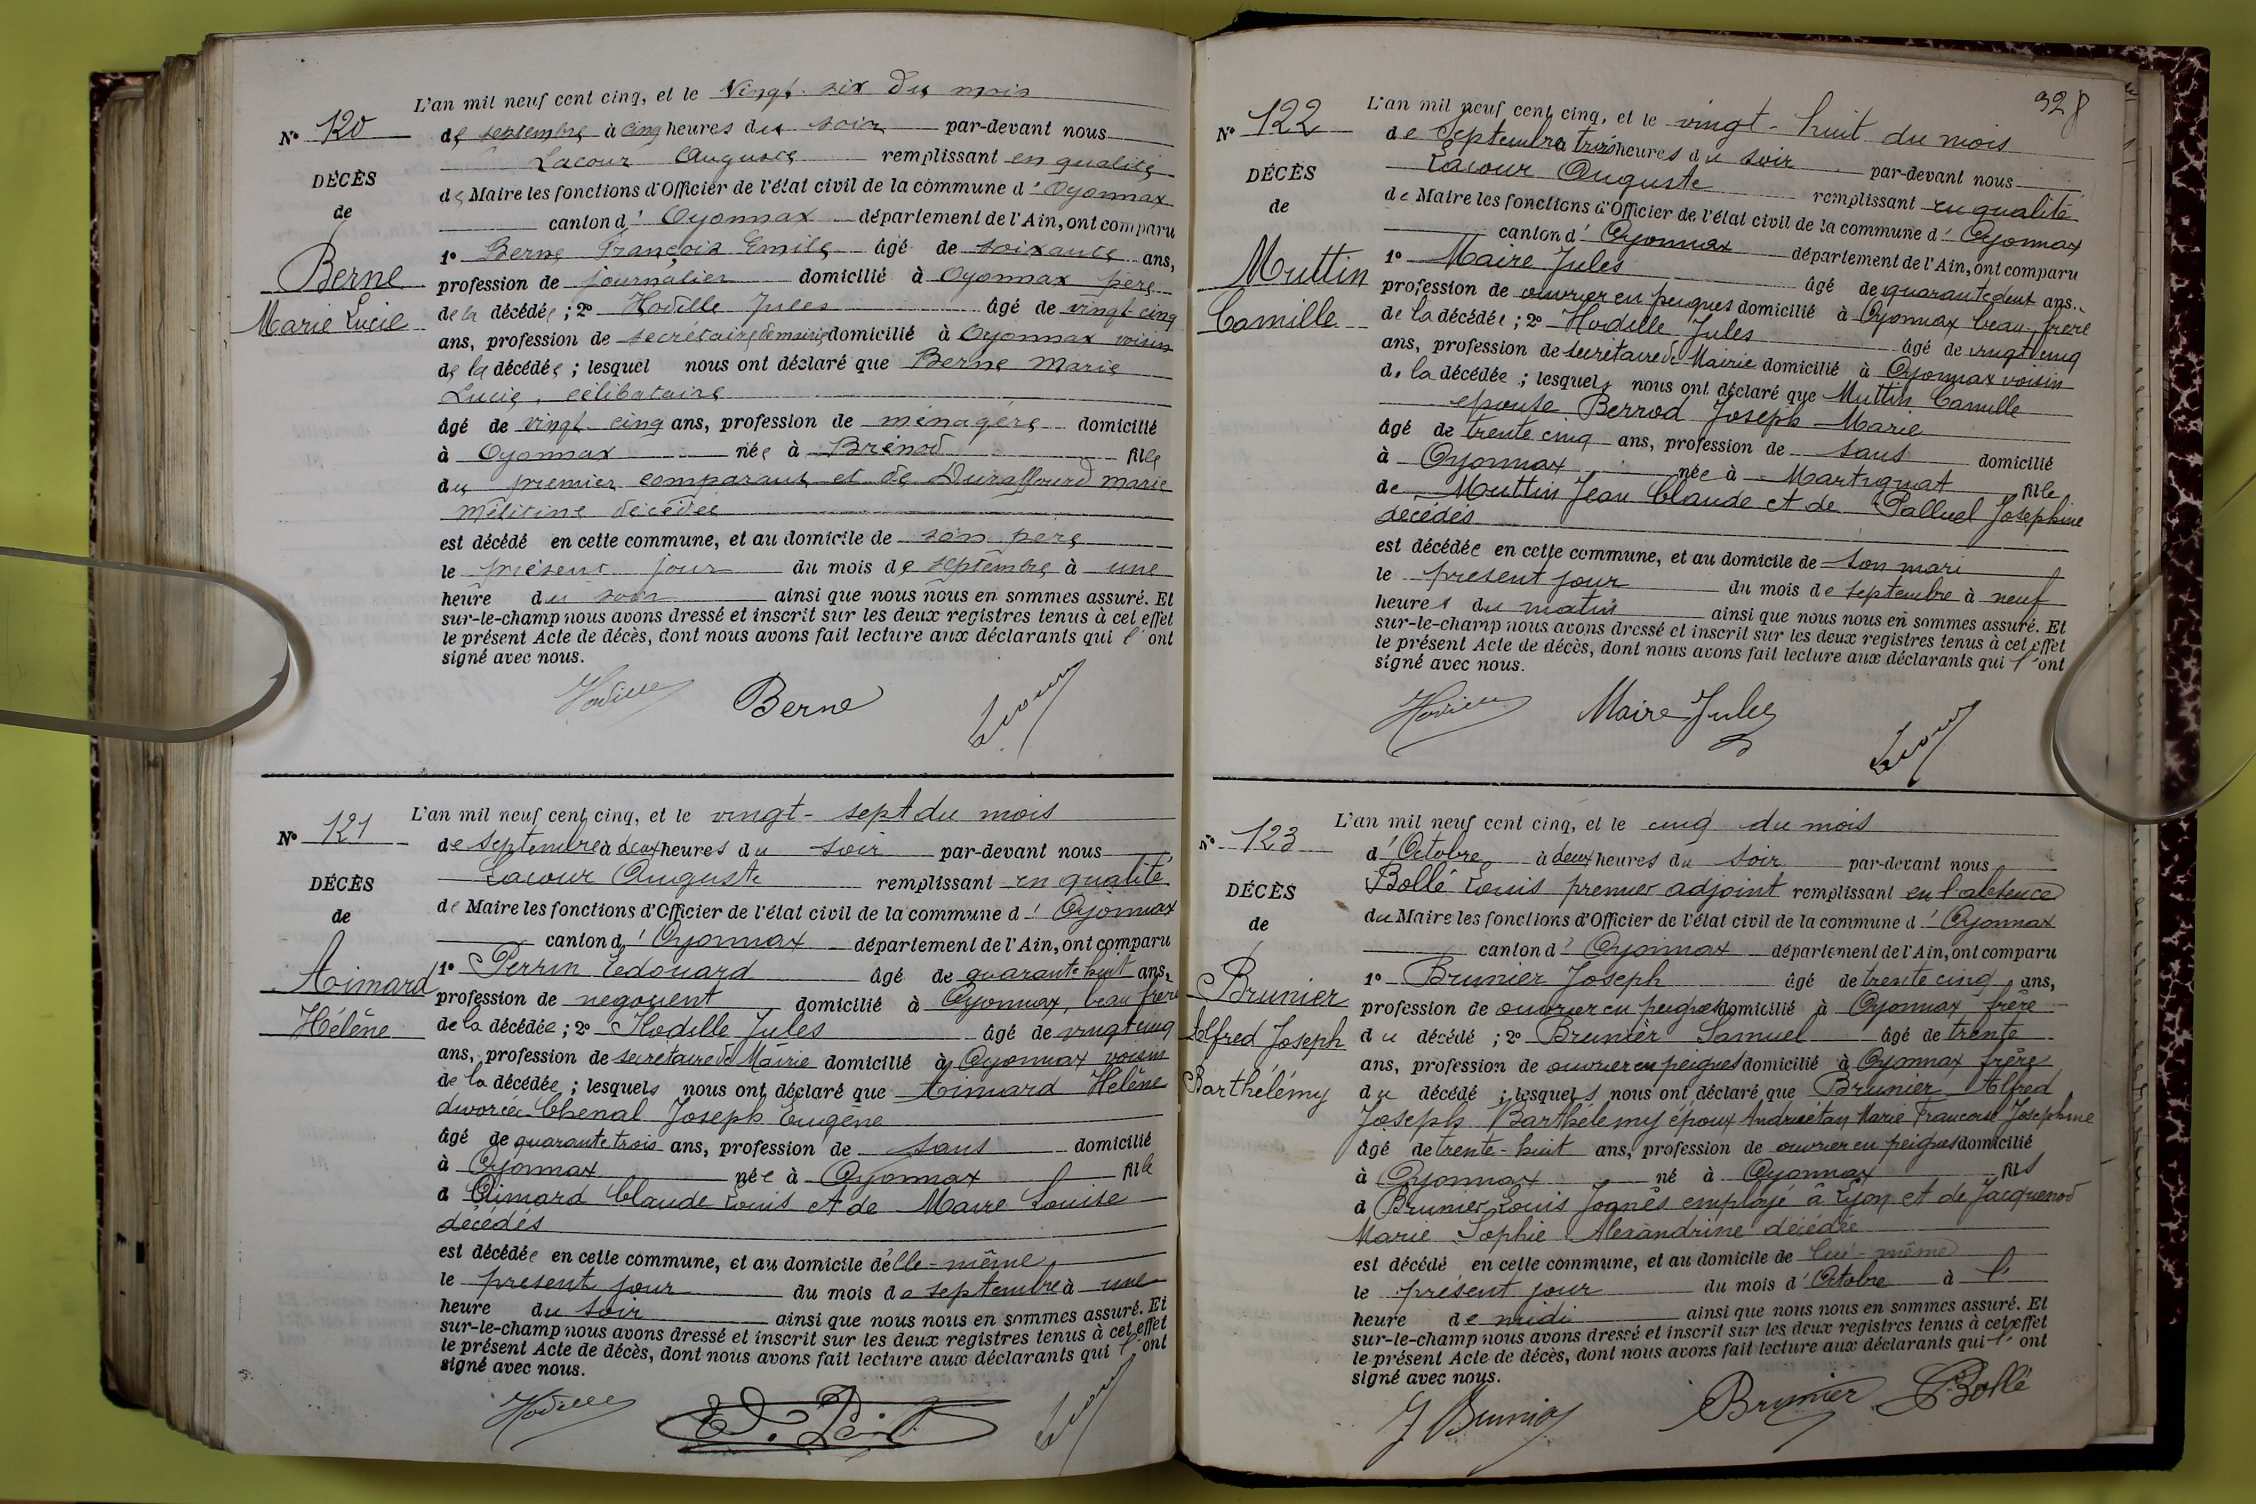 L'an mil neuf cent cinq, et le Vingt-six du mois
N° 120
de septembre à cinq heures du soir par-devant nous
Lacour Auguste remplissant en qualité
DÉCÈS
de Maire les fonctions d'Officier de l'état civil de la commune d'Oyonnax
de
canton d'Oyonnax département de l'Ain, ont comparu
1° Berne François Emile âgé de soixante ans,
Berne
profession de journalier domicilié à Oyonnax père
Marie Lucie
de la décédée ; 2° Hodille Jules âgé de vingt cinq
ans, profession de secrétaire de mairie domicilié à Oyonnax voisin
de la décédée ; lesquel nous ont déclaré que Berne Marie
Lucie, célibataire
âgé de vingt cinq ans, profession de ménagère domicilié
à Oyonnax née à Brénod fille
du premier comparant et de Duraffourd marie
décédée
est décédé en cette commune, et au domicile de son père
le présent jour du mois de septembre à une
heure du soir ainsi que nous nous en sommes assuré. Et
sur-le-champ nous avons dressé et inscrit sur les deux registres tenus à cet effet
le présent Acte de décès, dont nous avons fait lecture aux déclarants qui l'ont
signé avec nous.
Hodille Berne Lacour
L'an mil neuf cent cinq, et le vingt-sept du mois
N° 121
de septembre à deux heures du soir par-devant nous
Lacour Auguste remplissant en qualité
DÉCÈS
de Maire les fonctions d'Officier de l'état civil de la commune d'Oyonnax
de
canton d'Oyonnax département de l'Ain, ont comparu
Aimard
1° Perrin Edouard âgé de quarante huit ans,
profession de negociant domicilié à Oyonnax, beau frère
Hélène
de la décédée ; 2° Hodille Jules âgé de vingt cinq
ans, profession de secretaire de Mairie domicilié à Oyonnax voisin
de la décédée ; lesquels nous ont déclaré que Aimard Hélène
divorcée Chenal Joseph Eugène
âgé de quarante trois ans, profession de sans domicilié
à Oyonnax née à Oyonnax fille
d Aimard Claude Louis et de Maire Louise
décédés
est décédée en cette commune, et au domicile d'elle-même
le présent jour du mois de septembre à une
heure du soir ainsi que nous nous en sommes assuré. Et
sur-le-champ nous avons dressé et inscrit sur les deux registres tenus à cet effet
le présent Acte de décès, dont nous avons fait lecture aux déclarants qui l'ont
signé avec nous.
Hodille Lacour
328
L'an mil neuf cent cinq, et le vingt-huit du mois
N° 122
de Septembre à trois heures du soir par-devant nous
Lacour Auguste remplissant en qualité
DÉCÈS
de Maire les fonctions d'Officier de l'état civil de la commune d'Oyonnax
de
canton d'Oyonnax département de l'Ain, ont comparu
Muttin
1° Maire Jules âgé de quarante deux ans,
profession de ouvrier en peignes domicilié à Oyonnax beau-frère
Camille
de la décédée ; 2° Hodille Jules âgé de vingt cinq
ans, profession de secrétaire de Mairie domicilié à Oyonnax voisin
de la décédée ; lesquels nous ont déclaré que Muttin Camille
épouse Berrod Joseph Marie
âgé de trente cinq ans, profession de sans domicilié
à Oyonnax née à Martignat fille
de Muttin Jean Claude et de Palluel Joséphine
décédés
est décédée en cette commune, et au domicile de son mari
le présent jour du mois de septembre à neuf
heures du matin ainsi que nous nous en sommes assuré. Et
sur-le-champ nous avons dressé et inscrit sur les deux registres tenus à cet effet
le présent Acte de décès, dont nous avons fait lecture aux déclarants qui l'ont
signé avec nous.
Hodille Maire Jules Lacour
L'an mil neuf cent cinq, et le cinq du mois
N° 123
d'Octobre à deux heures du soir par-devant nous
Bollé Louis premier adjoint remplissant en l'absence
DÉCÈS
du Maire les fonctions d'Officier de l'état civil de la commune d'Oyonnax
de
canton d'Oyonnax département de l'Ain, ont comparu
1° Brunier Joseph âgé de trente cinq ans,
Brunier
profession de ouvrier en peignes domicilié à Oyonnax frère
Alfred Joseph
du décédé ; 2° Brunier Samuel âgé de trente
ans, profession de ouvrier en peignes domicilié à Oyonnax frère
Barthélémy
du décédé ; lesquels nous ont déclaré que Brunier Alfred
Joseph Barthélemy époux Andruétan Marie Francoise Josephine
âgé de trente-huit ans, profession de ouvrier en peignes domicilié
à Oyonnax né à Oyonnax fils
d Brunier Louis Joanès employé à Lyon et de Jacquenod
Marie Sophie Alexandrine décédée
est décédé en cette commune, et au domicile de lui-même
le présent jour du mois d'Octobre à l'
heure de midi ainsi que nous nous en sommes assuré. Et
sur-le-champ nous avons dressé et inscrit sur les deux registres tenus à cet effet
le présent Acte de décès, dont nous avons fait lecture aux déclarants qui l'ont
signé avec nous.
J Brunier Brunier L. Bollé